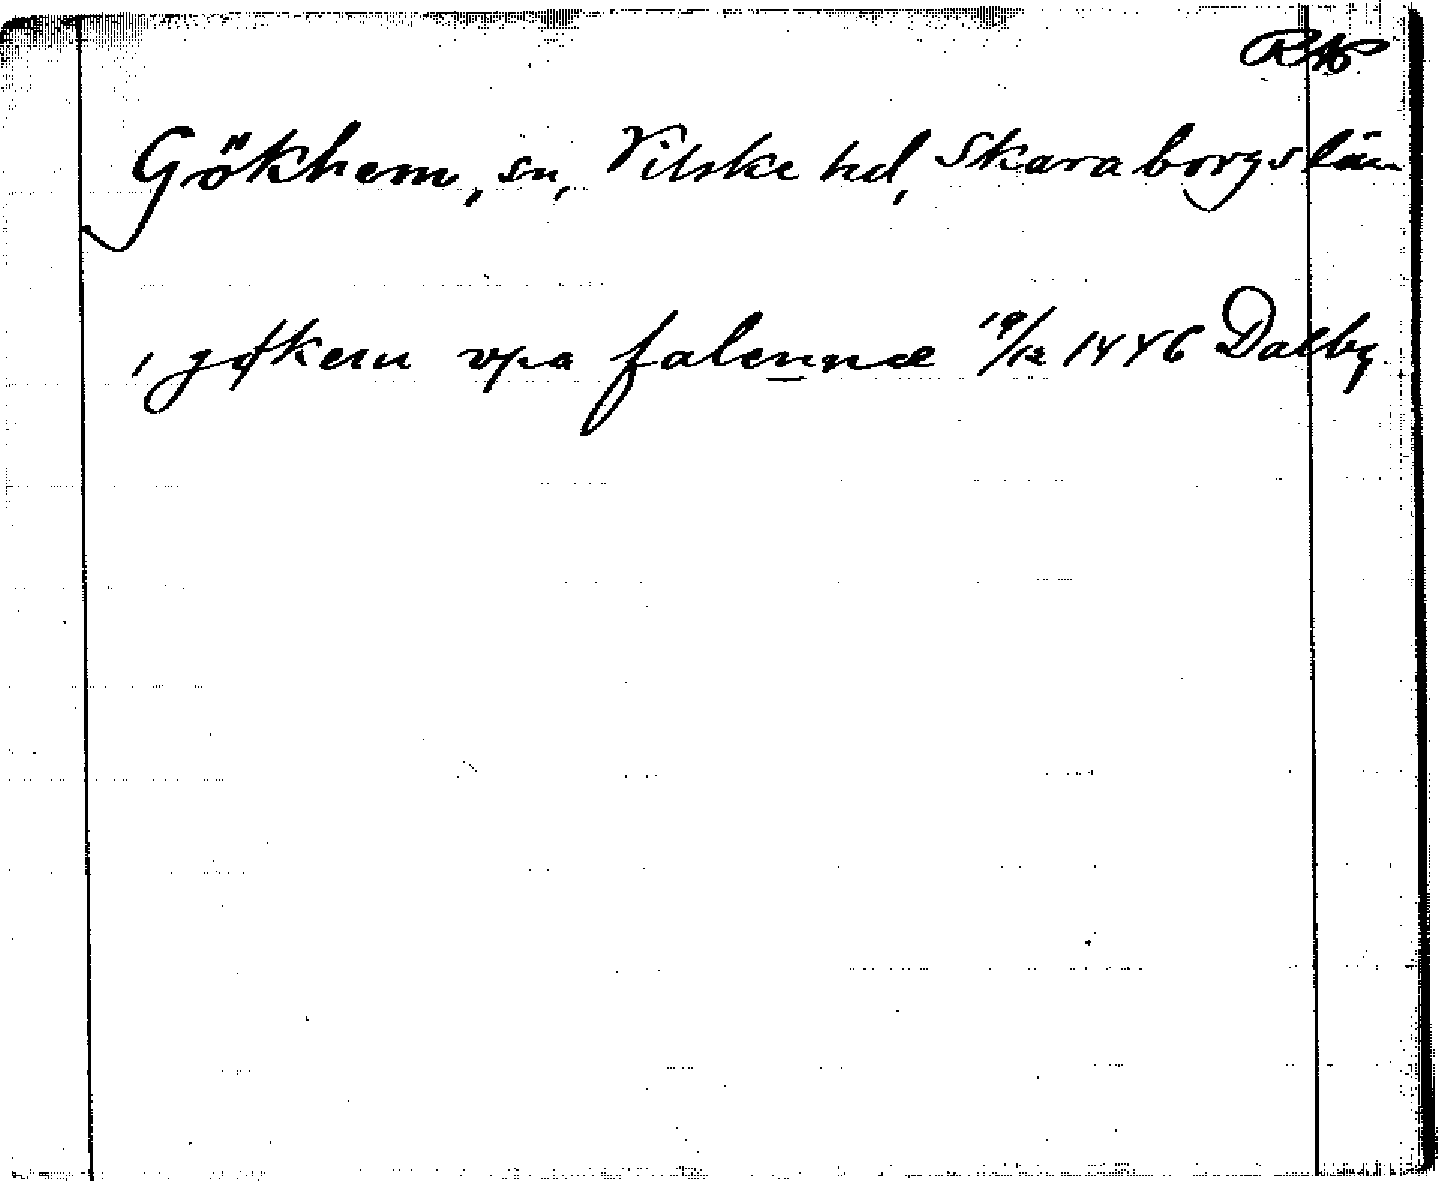 RAP
Gökhem, sn, Vilske hd, Skaraborgs län
i gøkem vpa falennæ 19/12 1446 Dalby